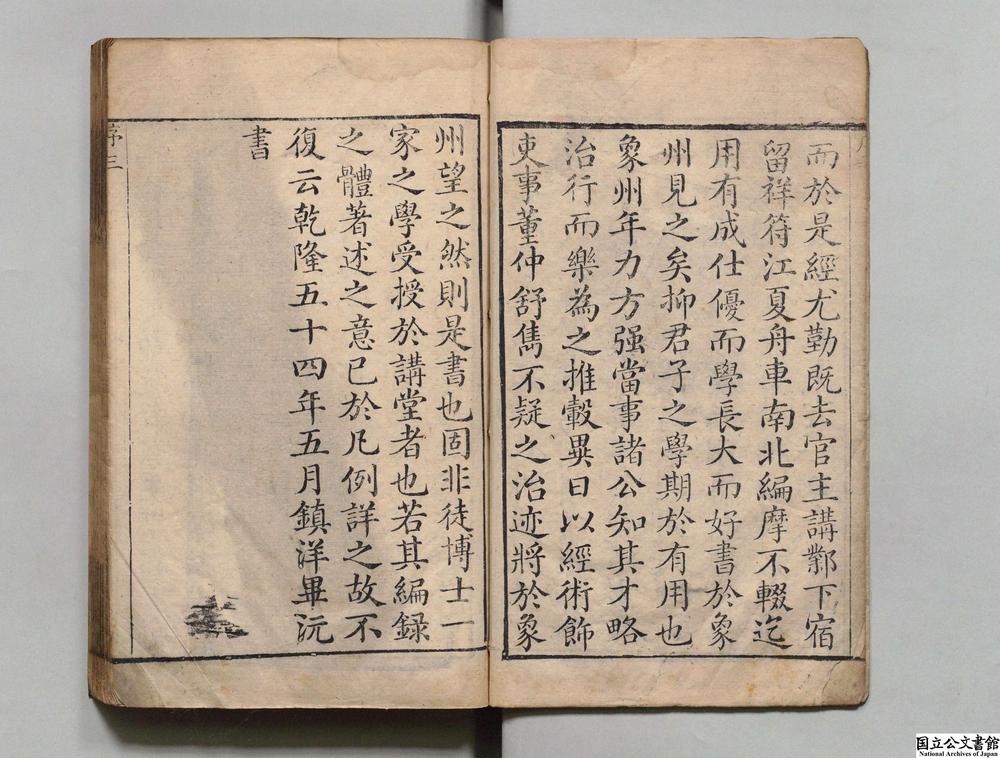 而於是經尤勤既去官主講鄴下宿
留祥符江夏舟車南北編摩不輟迄
用有成仕優而學長大而好書於象
州見之矣抑君子之學期於有用也
象州年力方强當事諸公知其才略
治行而樂為之推轂異日以經術飾
吏事董仲舒雋不疑之治迹將於象
州望之然則是書也固非徒博士一
家之學受授於講堂者也若其編録
之體著述之意已於凡例詳之故不
復云乾隆五十四年五月鎮洋畢沅
書
序三
国立公文書館
National Archives of Japan